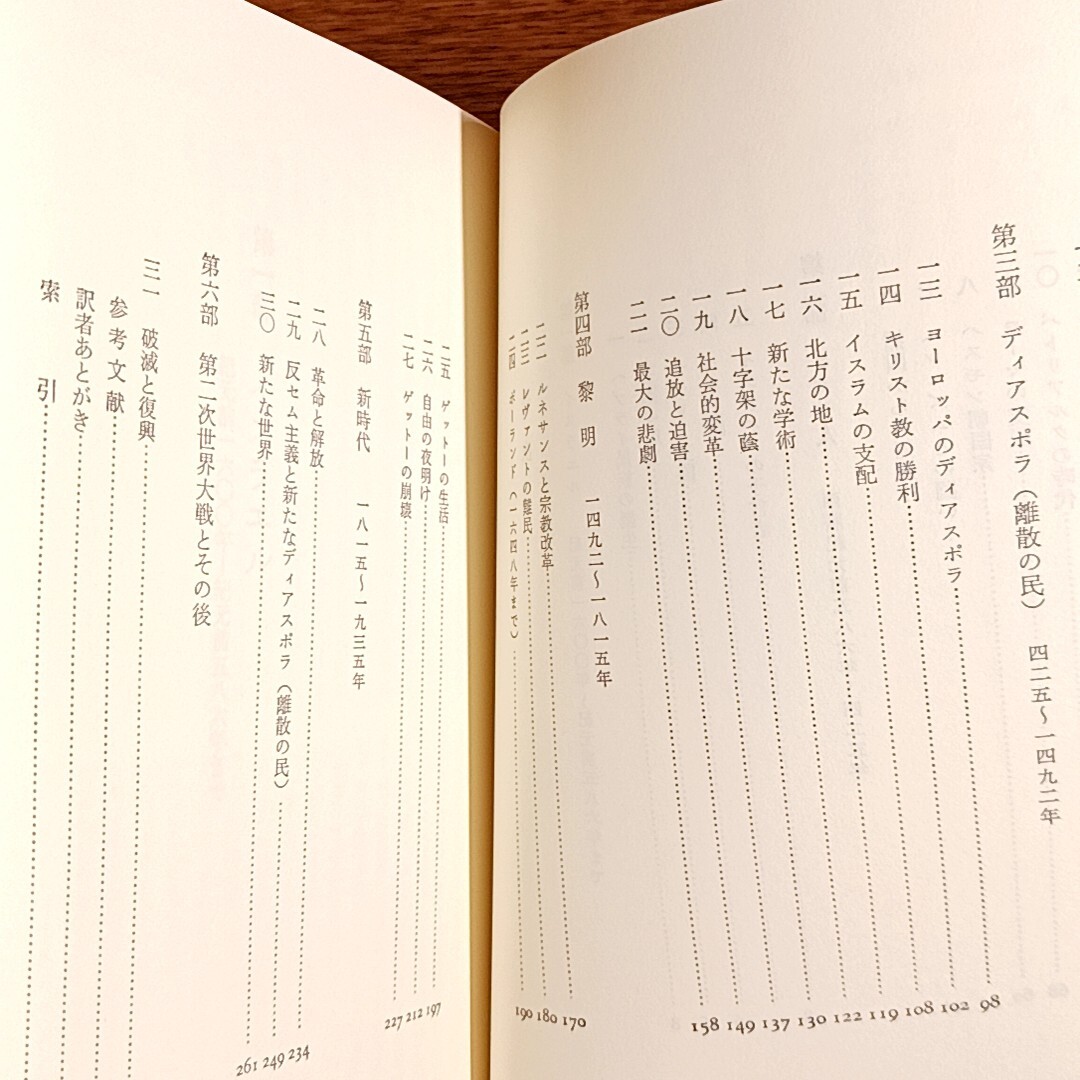 第三部　ディアスポラ（離散の民）　四二五〜一四九二年
一三　ヨーロッパのディアスポラ……98
一四　キリスト教の勝利……102
一五　イスラムの支配……108
一六　北方の地……119
一七　新たな学術……122
一八　十字架の蔭……130
一九　社会的変革……137
二〇　追放と迫害……149
二一　最大の悲劇……158
第四部　黎　明　一四九二〜一八一五年
二二　ルネサンスと宗教改革……170
二三　レヴァントの難民……180
二四　ポーランド（一六四八年まで）……190
二五　ゲットーの生活……197
二六　自由の夜明け……212
二七　ゲットーの崩壊……227
第五部　新時代　一八一五〜一九三五年
二八　革命と解放……234
二九　反セム主義と新たなディアスポラ（離散の民）……249
三〇　新たな世界……261
第六部　第二次世界大戦とその後
三一　破滅と復興……
参考文献……
訳者あとがき……
索　引……